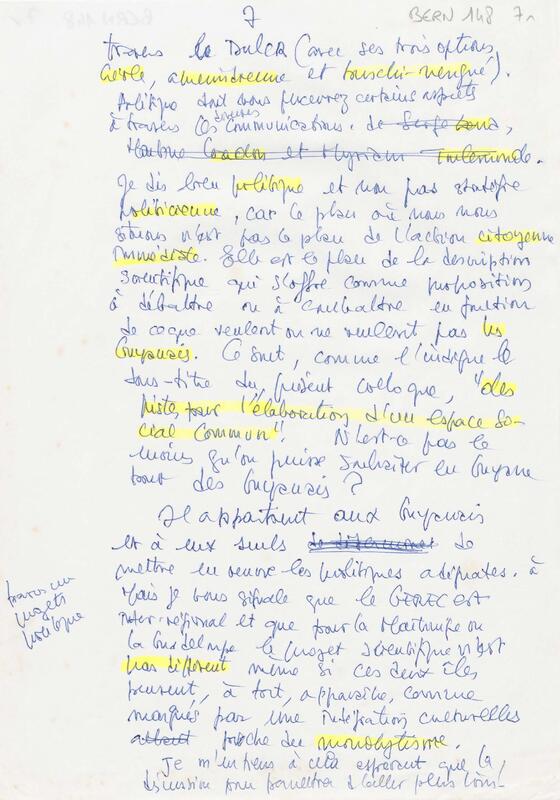 7
BERN 148 7r
travers le DULCR (avec ses trois options,
créole, amérindienne et bouschi-nengué).
Politique dont vous percevrez certains aspects
à travers les diverses communications. de Serge
et Myriam
Je dis bien politique et non pas stratégie
politicienne, car le plan où nous nous
situons n'est pas le plan de l'action citoyenne
immédiate. Elle est le plan de la description
scientifique qui s'offre comme proposition
à débattre ou à combattre en fonction
de ce que veulent ou ne veulent pas les
Guyanais. Ce sont, comme l'indique le
sous-titre du présent colloque, "des
pistes pour l'élaboration d'un espace so-
cial commun". N'est-ce pas le
moins qu'on puisse souhaiter en Guyane
tout des Guyanais ?
Il appartient aux Guyanais
et à eux seuls de
mettre en oeuvre les politiques adéquates. à
travers un
projet
politique
Mais je vous signale que le GEREC est
inter-régional et que pour la Martinique ou
la Guadeloupe le projet scientifique n'est
pas différent même si ces deux îles
peuvent, à tort, apparaître, comme
marqués par une intégration culturelles
proche du monolytisme.
Je m'en tiens à cela espérant que la
discussion nous permettra d'aller plus loin.